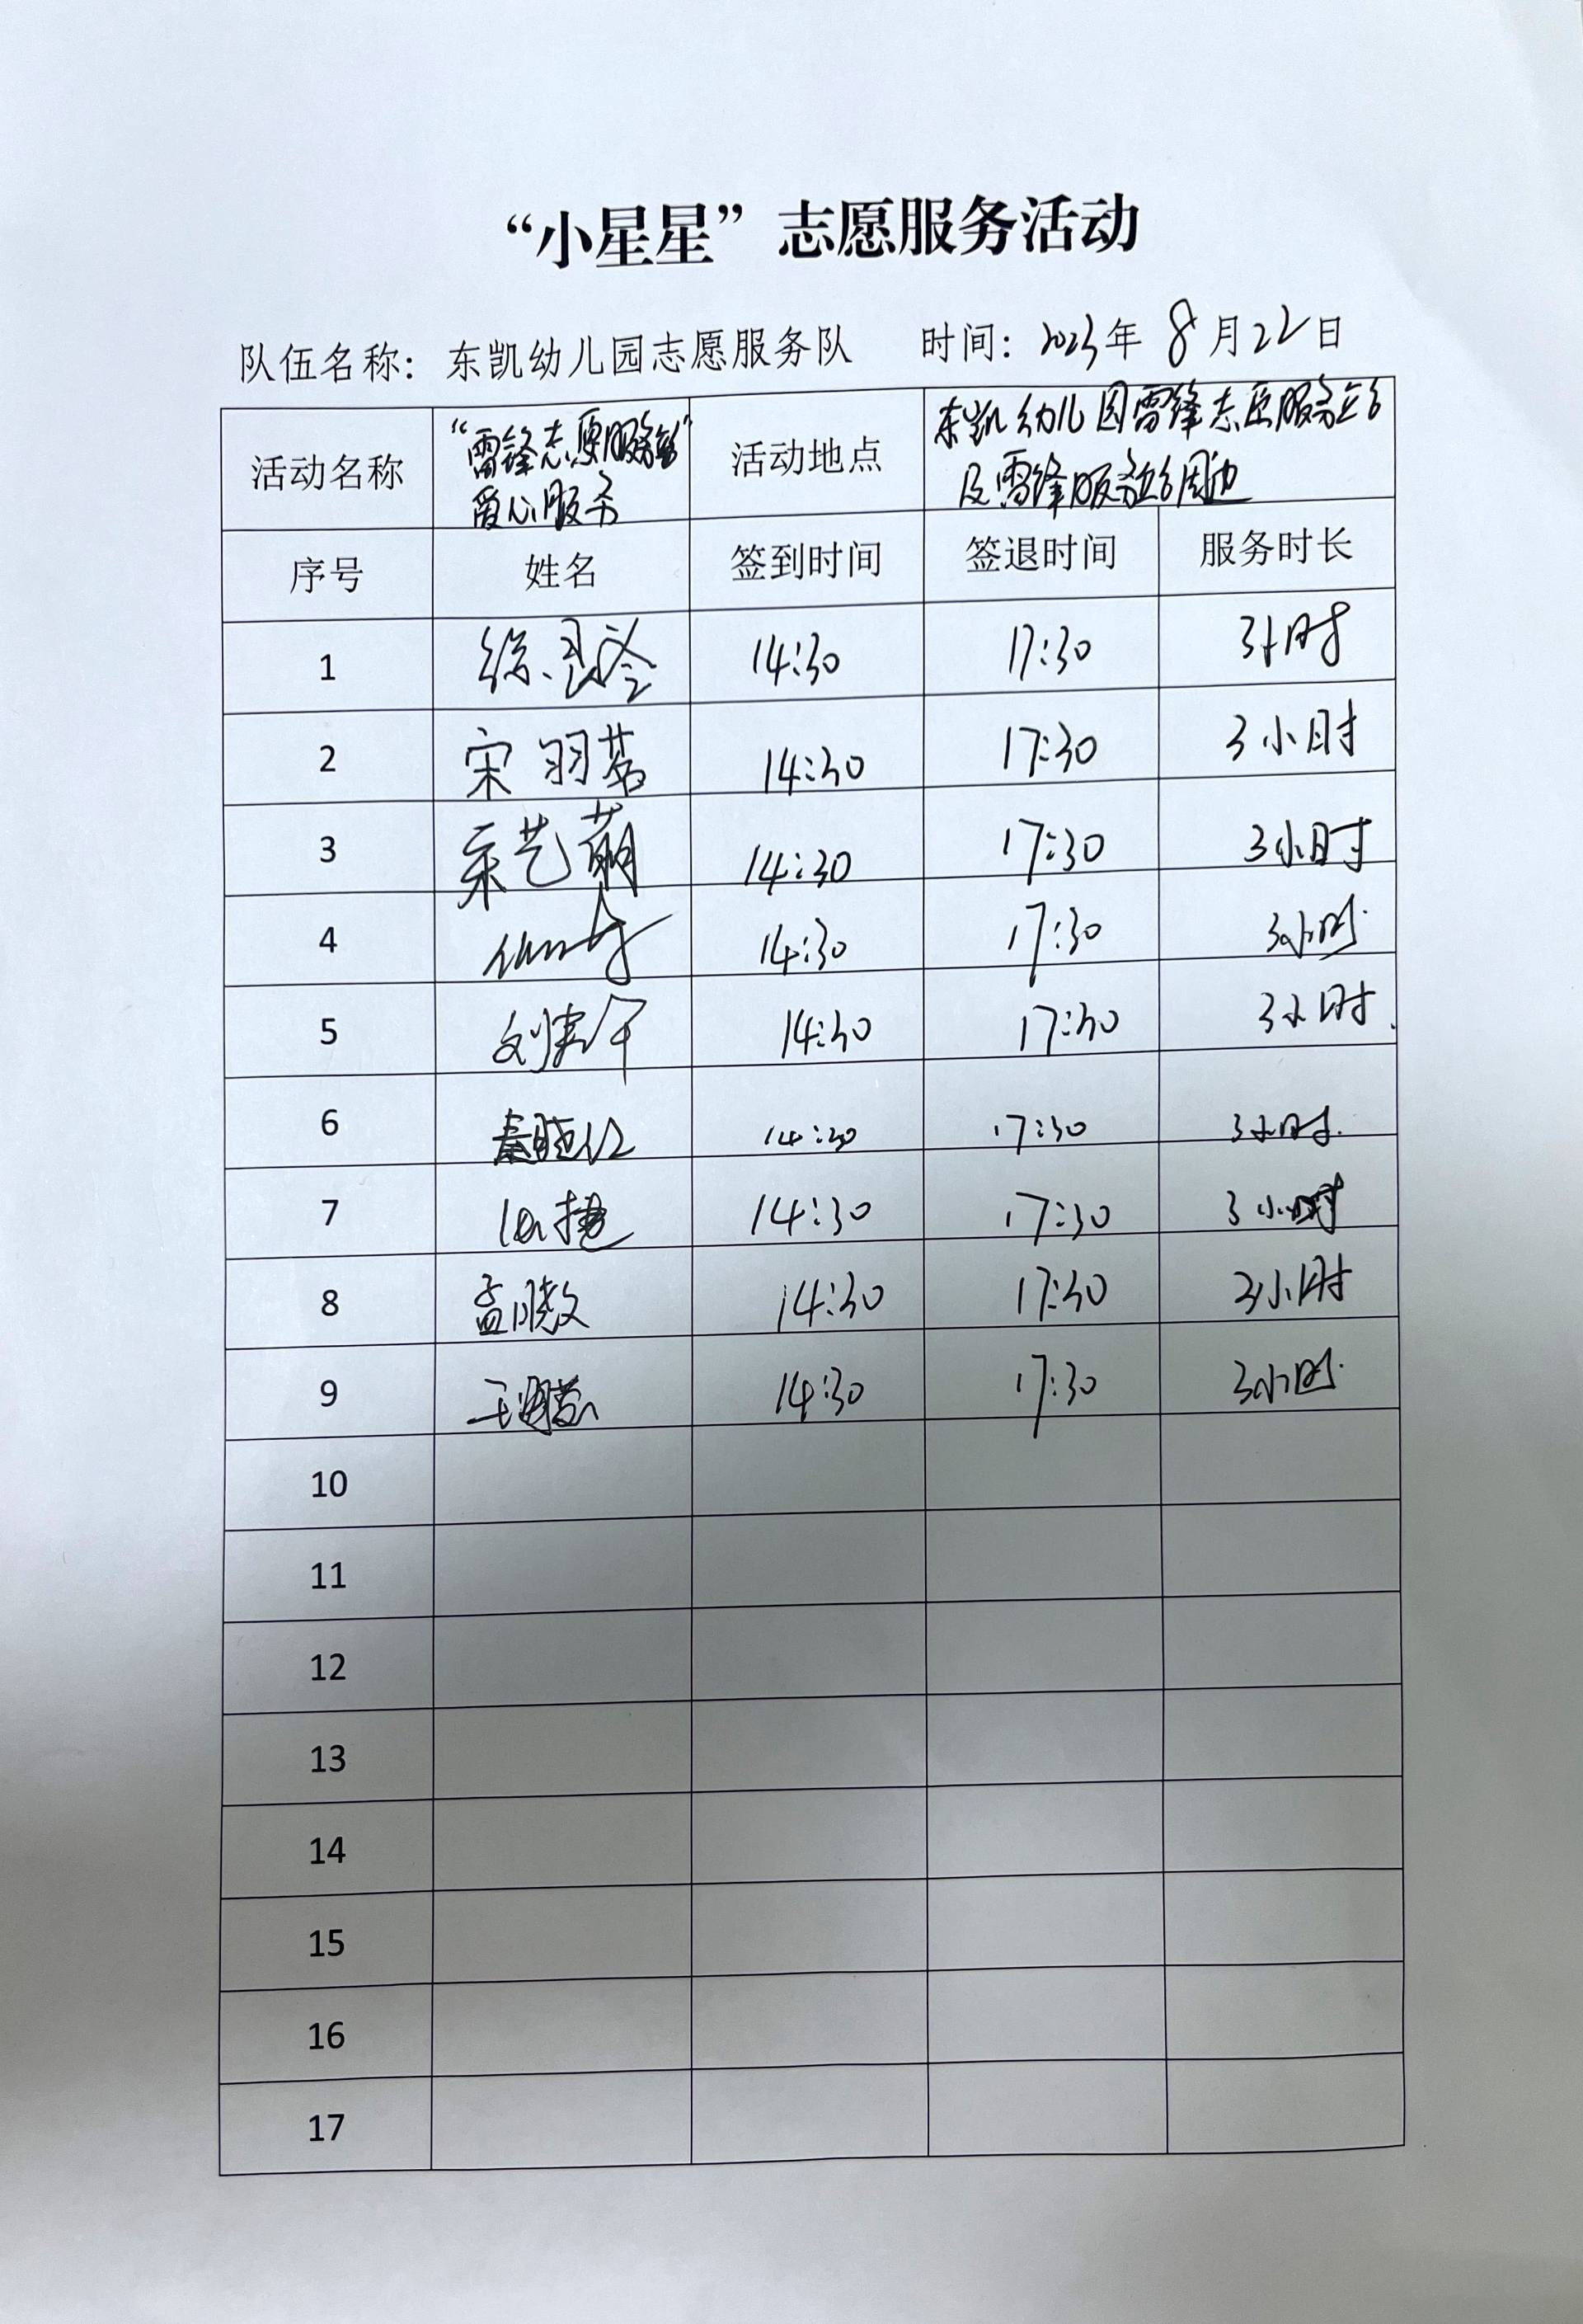 “小星星”志愿服务活动
队伍名称：东凯幼儿园志愿服务队 时间：2023年 8月22日
活动名称 “雷锋志愿服务站” 爱心服务 活动地点 东凯幼儿园雷锋志愿服务站 及雷锋服务站周边
序号 姓名 签到时间 签退时间 服务时长
1 14:30 17:30 3小时
2 宋羽茗 14:30 17:30 3小时
3 宋艺萌 14:30 17:30 3小时
4 14:30 17:30 3小时
5 14:30 17:30 3小时
6 14:30 17:30 3小时
7 14:30 17:30 3小时
8 孟晓敏 14:30 17:30 3小时
9 14:30 17:30 3小时
10
11
12
13
14
15
16
17